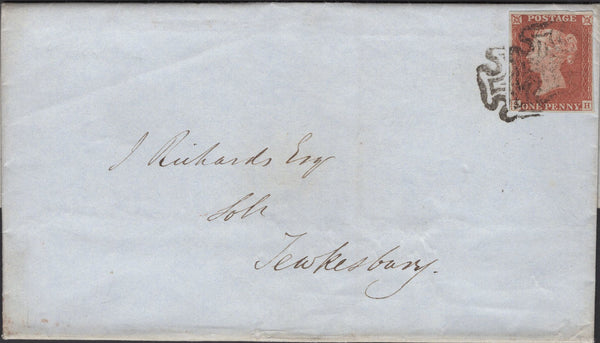 POSTAGE
ONE PENNY
J Richards Esq
Solr
Tewkesbury.